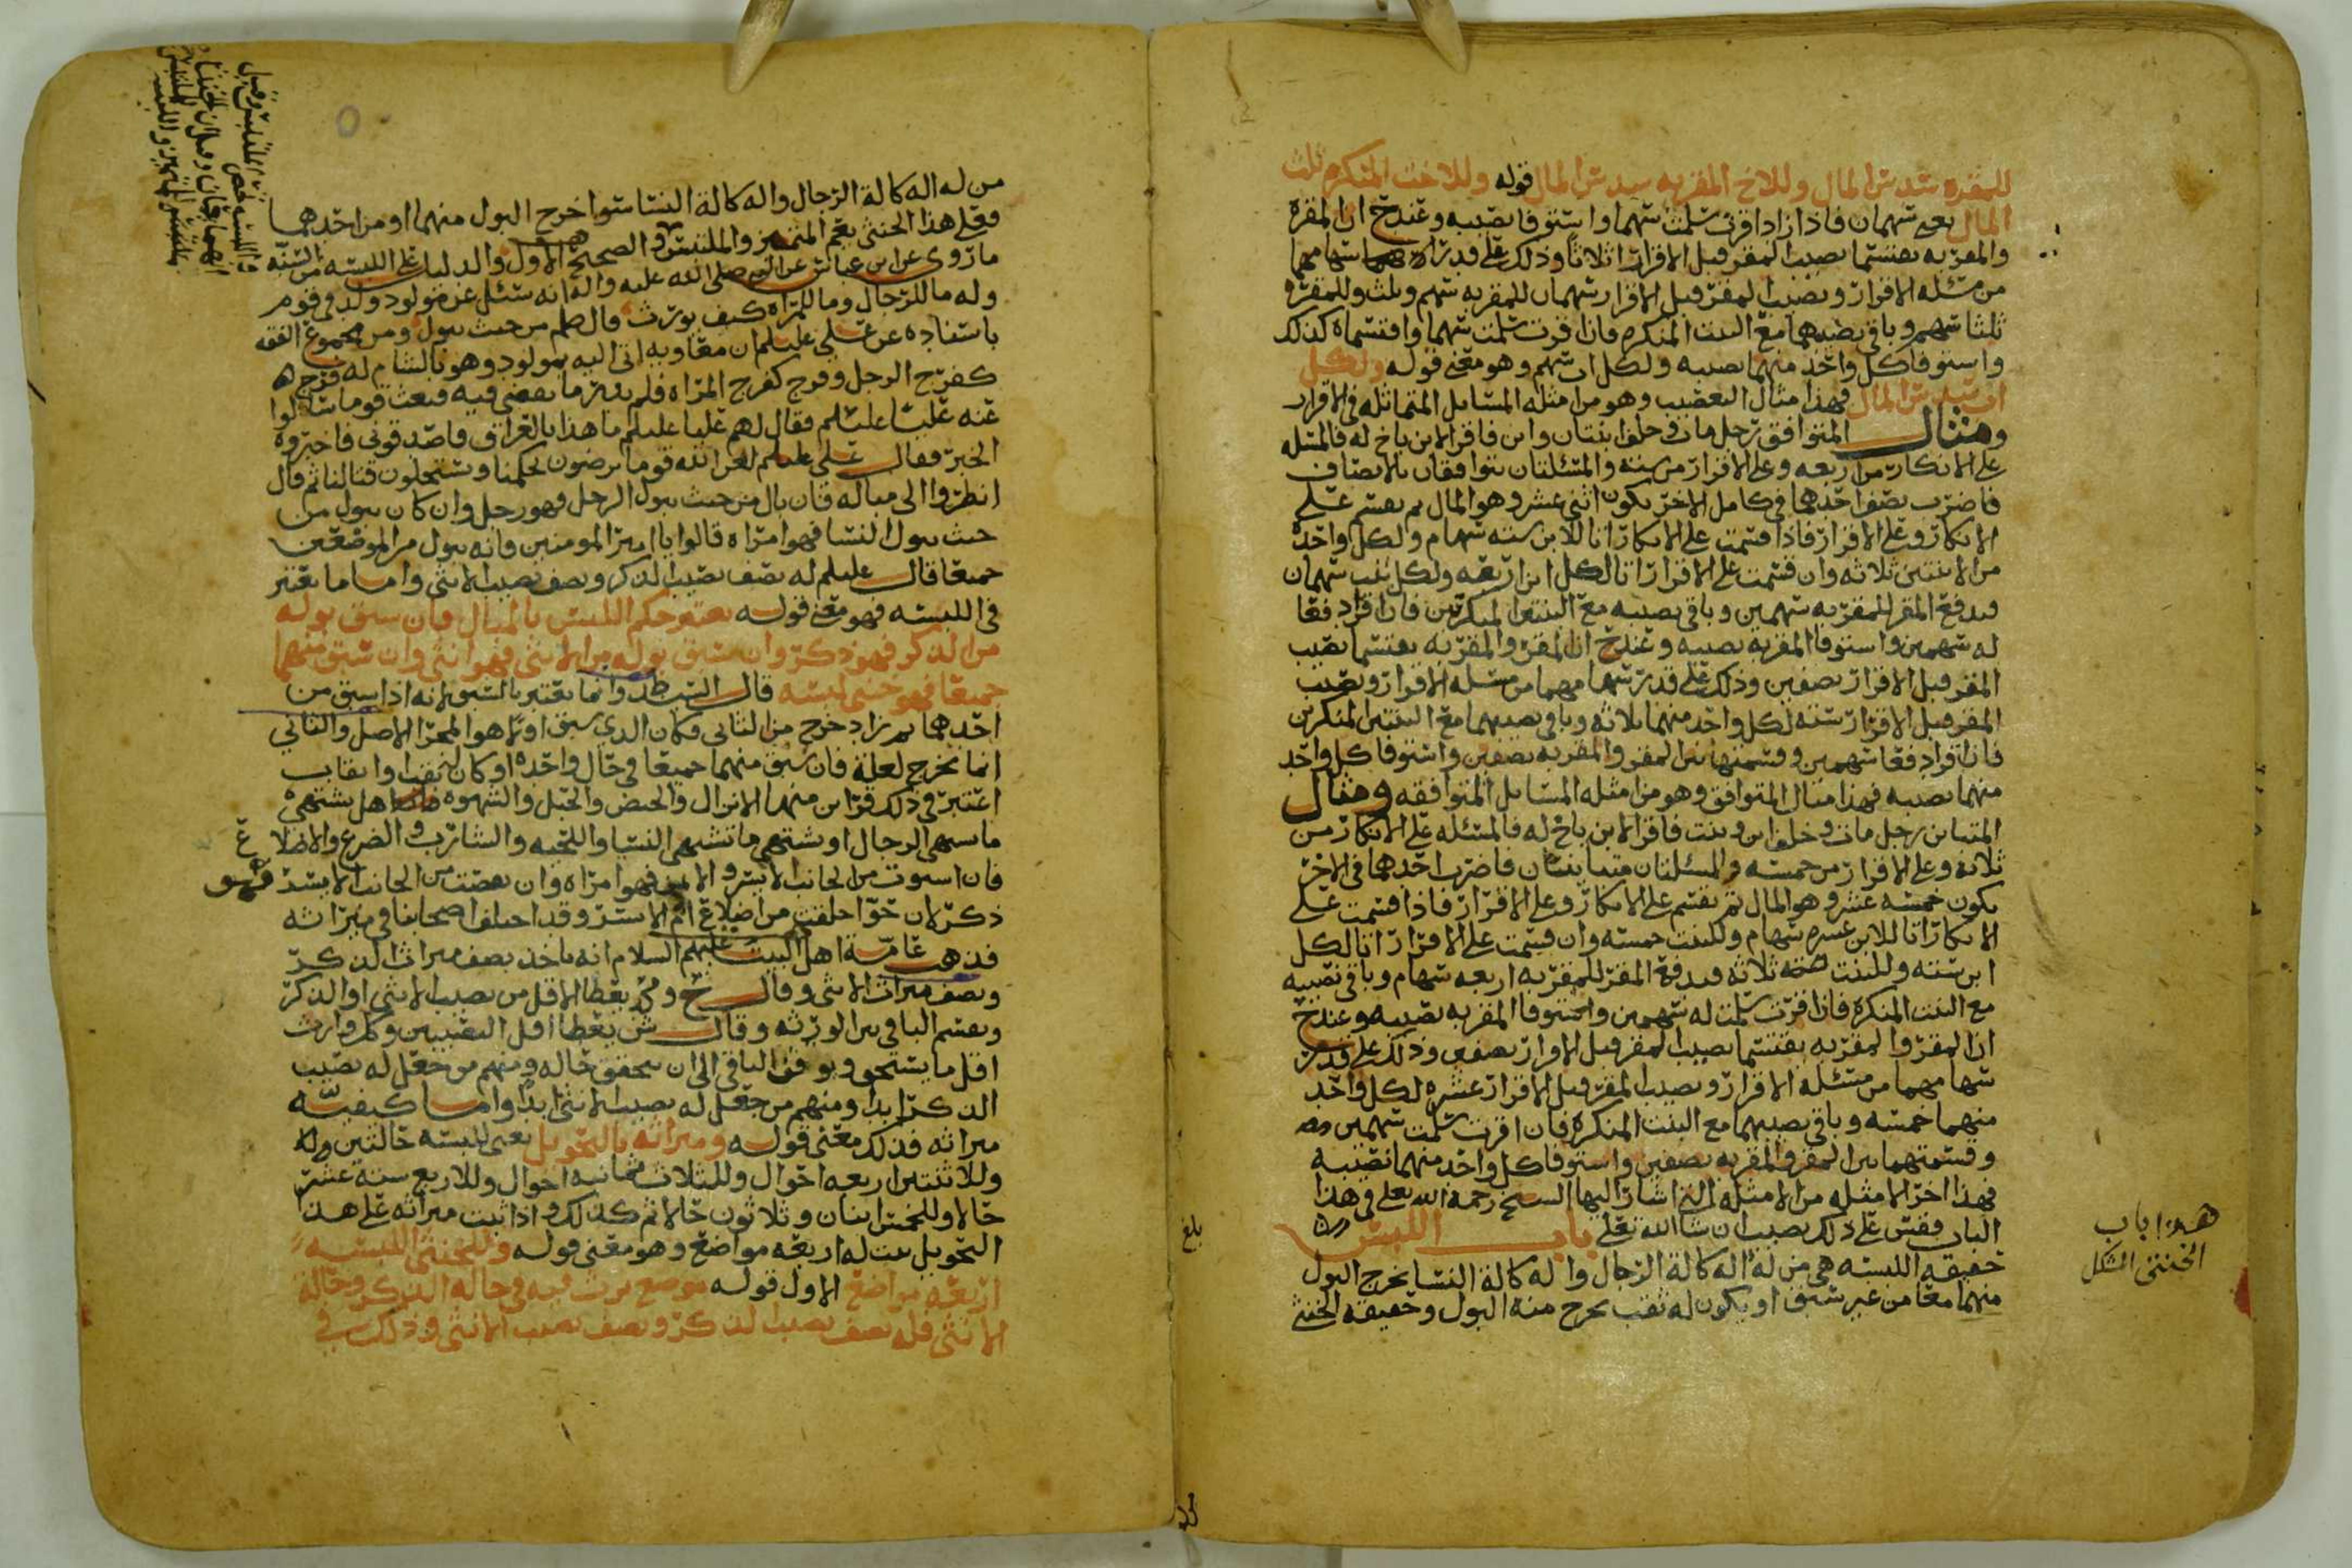 للمقره سدس المال وللاخ المقر به سدس المال قوله وللاخت المنكره ثلث
المال يعني سهمان فاذا اقرت سلمت سهما واستوفا نصيبه وعند ح ان المقره
والمقر به يقتسما نصيب المقر قبل الاقرار اثلاثا وذلك على قدر سهامهما
من مسئله الاقرار ونصيب المقر قبل الاقرار سهمان للمقر به سهم وثلث وللمقره
ثلثا سهم وباقي نصيبهما مع البنت المنكره فاذا اقرت سلمت سهما واقتسماه كذلك
واستوفا كل واحد منهما نصيبه ولكل اب سهم وهو معنى قوله ولكل
اب سدس المال فهذا مثال التعصيب وهو من امثله المسايل المتماثله في الاقرار
ومثال المتوافق رجل مات وخلف ابنتان وابن فاقر الابن باخ له فالمسئله
على الانكار من اربعه وعلى الاقرار من سته والمسئلتان تتوافقان بالانصاف
فاضرب نصف احدهما في كامل الاخر يكون اثني عشر وهو المال ثم يقسم على
الانكار وعلى الاقرار فاذا قسمت على الانكار اتا للابن سته سهام ولكل واحده
من الابنتين ثلاثه وان قسمت على الاقرار اتا لكل ابن اربعه ولكل بنت سهمان
فيدفع المقر للمقر به سهمين وباقي نصيبه مع البنتين المنكرتين فان اقرا دفعا
له سهمين واستوفا المقر به نصيبه وعند ح ان المقر والمقر به يقتسما نصيب
المقر قبل الاقرار نصفين وذلك على قدر سهامهما من مسئله الاقرار ونصيب
المقر قبل الاقرار سته لكل واحد منهما ثلاثه وباقي نصيبهما مع البنتين المنكرتين
فان اقرا دفعا سهمين وقسمتهما بين المقر والمقر به نصفين واستوفا كل واحد
منهما نصيبه فهذا مثال المتوافق وهو من امثله المسايل المتوافقه ومثال
المتباين رجل مات وخلف ابن وبنت فاقر الابن باخ له فالمسئله على الانكار من
ثلاثه وعلى الاقرار من خمسه والمسئلتان متباينتان فاضرب احدهما في الاخر
يكون خمسه عشر وهو المال ثم يقسم على الانكار وعلى الاقرار فاذا قسمت على
الانكار اتا للابن عشره سهام وللبنت خمسه وان قسمت على الاقرار اتا لكل
ابن سته وللبنت ثلاثه فيدفع المقر للمقر به اربعه سهام وباقي نصيبه
مع البنت المنكره فاذا اقرت سلمت له سهمين واستوفا المقر به نصيبه وعند ح
ان المقر والمقر به يقتسما نصيب المقر قبل الاقرار نصفين وذلك على قدر
سهامهما من مسئله الاقرار ونصيب المقر قبل الاقرار عشره لكل واحد
منهما خمسه وباقي نصيبهما مع البنت المنكره فان اقرت سلمت سهمين
وقسمتهما بين المقر والمقر به نصفين واستوفا كل واحد منهما نصيبه
فهذا اخر الامثله من الامثله التي اشار اليها الشيخ رحمه الله تعلى في هذا
الباب فقس على ذلك تصيب ان شا الله تعلى باب اللبس
حقيقه اللبسه هي من له اله كالة الرجال واله كالة النسا يخرج البول
منهما معا من غير سبق او يكون له ثقب يخرج منه البول وحقيقه الخنثى
هذا باب
الخنثى المشكل
بلغ
من له اله كالة الرجال واله كالة النسا ستوا خرج البول منهما او من احدهما
وقيل هذا الخنثى يعم المتميز والملتبس والصحيح الاول والدليل على اللبسه من السنه
ما روي عن ابن عباس عن النبي صلى الله عليه واله انه سئل عن مولود ولد في قوم
وله ما للرجال وما للمراه كيف يورث قال صلعم من حيث يبول ومن مجموع الفقه
باسناده عن علي عليلم ان معاويه اتى اليه بمولود وهو بالشام له فرج
كفرج الرجل وفرج كفرج المراه فلم يدر ما يقضي فيه فبعث قوما سالوا
عنه عليا عليلم فقال لهم عليا عليلم ما هذا بالعراق فاصدقوني فاخبروه
الخبر فقال علي عليلم لعن الله قوما يرضون بحكمنا ويستحلون قتالنا ثم قال
انظروا الى مباله فان بال من حيث يبول الرجل فهو رجل وان كان يبول من
حيث يبول النسا فهو امراه قالوا يا امير المومنين فانه يبول من الموضعين
جميعا قال عليلم له نصف نصيب الذكر ونصف نصيب الانثى واما ما يعتبر
في اللبسه فهو معنى قوله يعتبر حكم اللبس بالمبال فان سبق بوله
من الذكر فهو ذكر وان سبق بوله من الانثى فهو انثى وان سبق منهما
جميعا فهو خنثى لبسه قال وانما يعتبر بالسبق لانه اذا سبق من
احدهما ثم زاد خرج من الثاني فكان الذي سبق اولا هو المجرا الاصل والثاني
انما يخرج لعلة فان سبق منهما جميعا في حال واحده او كان له ثقبا او نقاب
اعتبر في ذلك قراين منها الانزال والحيض والحبل والشهوه هل يشتهي
ما يشتهي الرجال او يشتهي ما تشتهي النسا واللحيه والشارب والضرع والاضلاع
فان استوت من الجانب الايسر والايمن فهو امراه وان نقصت من الجانب الايسر فهو
ذكر لان حوا خلقت من اضلاع ادم الايسر وقد اختلف اصحابنا في ميراثه
فذهب عامة اهل البيت عليهم السلام انه ياخذ نصف ميراث الذكر
ونصف ميراث الانثى وقال ح ومحمد يعطا الاقل من نصيب الانثى او الذكر
ويقسم الباقي بين الورثه وقال ش يعطا اقل النصيبين وكل وارث
اقل ما يستحق ويوقف الباقي الى ان يتحقق حاله ومنهم من جعل له نصيب
الذكر ابدا ومنهم من جعل له نصيب الانثى ابدا واما كيفيه
ميراثه فذلك معنى قوله وميراثه بالتحويل يعني للبسه حالتين
وللاثنتين اربعه احوال وللثلاث ثمانيه احوال وللاربع ستة عشر
حالا وللخمس اثنان وثلاثون حالا ثم كذلك واذا ثبت ميراثه على هذا
التحويل ثبت له اربعه مواضع وهو معنى قوله وللخنثى اللبسه
اربعه مواضع الاول قوله موضع يرث فيه في حاله الذكر وحاله
الانثى فله نصف نصيب الذكر ونصف نصيب الانثى وذلك في